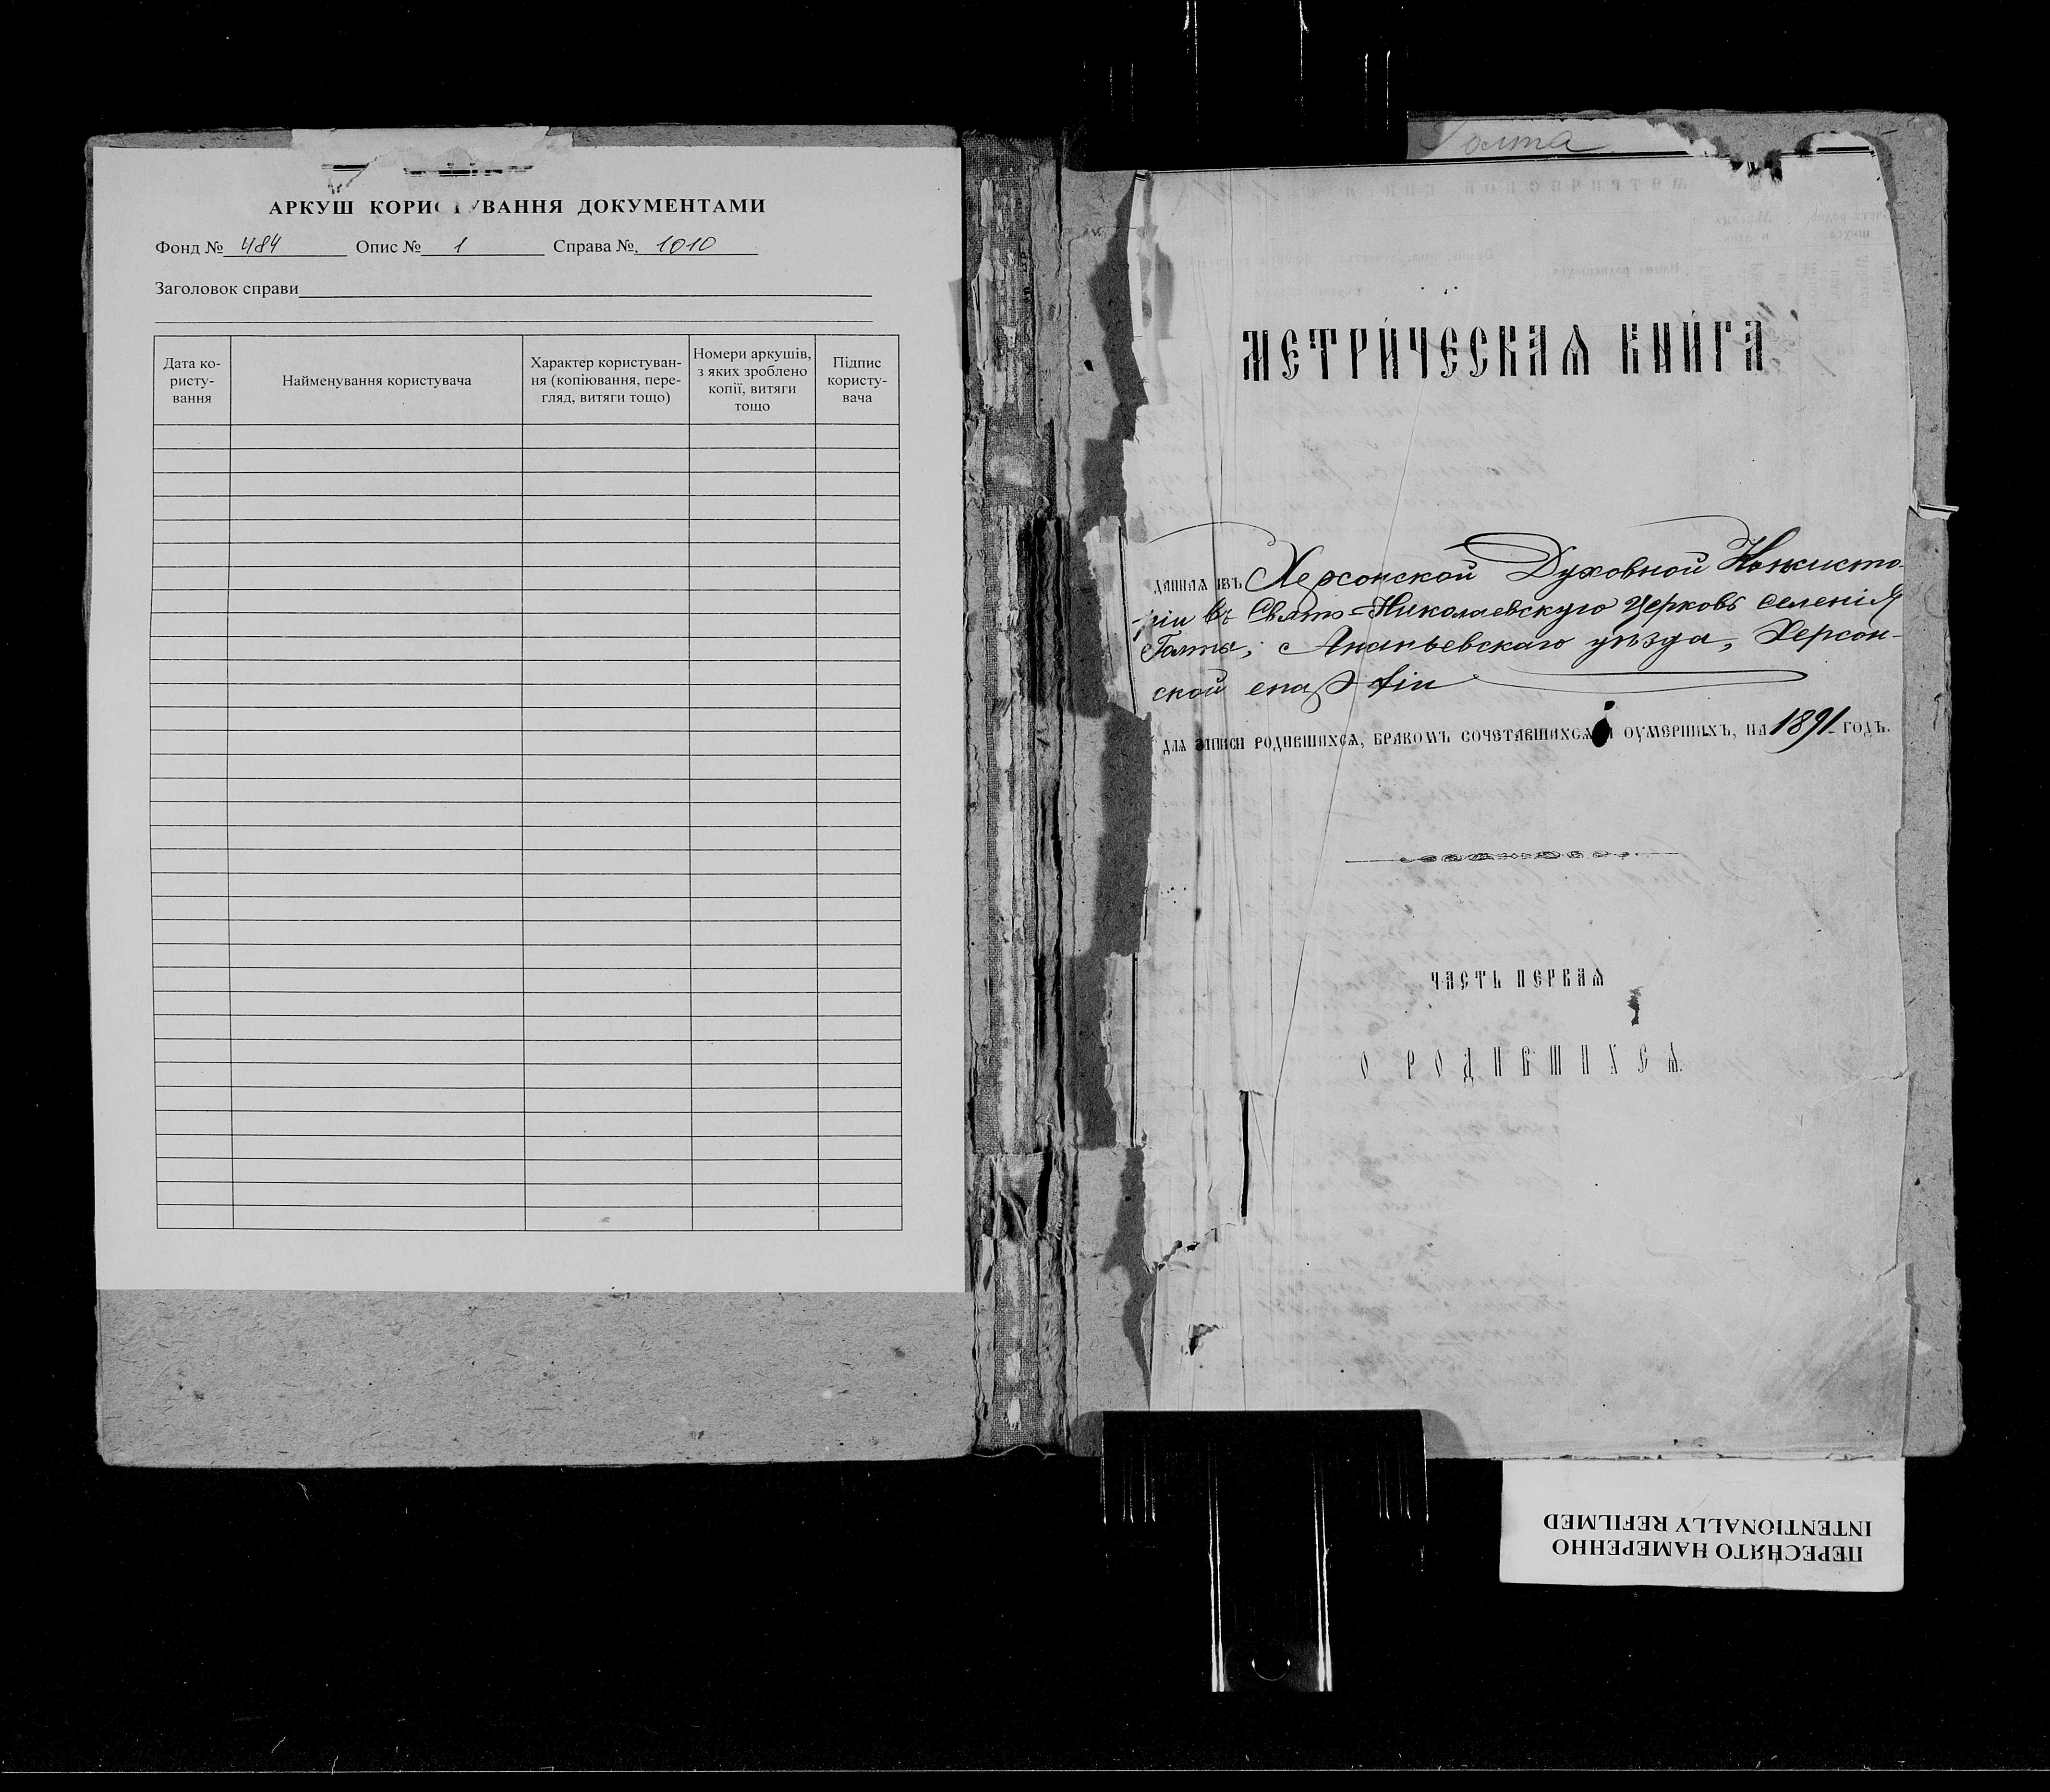 АРКУШ КОРИСТУВАННЯ ДОКУМЕНТАМИ
Фонд № 484 Опис № 1 Справа № 1010
Заголовок справи
Дата ко-
ристу-
вання
Найменування користувача
Характер користуван-
ня (копіювання, пере-
гляд, витяги тощо)
Номери аркушів,
з яких зроблено
копії, витяги
тощо
Підпис
користу-
вача
Голта
МЕТРИ́ЧЕСКАѦ КНИ́ГА
ДАННАЯ ИЗЪ Херсонской Духовной Консисто-
ріи въ Свято-Николаевскую церковь селенія
Голты, Ананьевскаго уѣзда, Херсон-
ской епархіи
ДЛЯ ЗАПИСИ РОДИВШИХСЯ, БРАКОМЪ СОЧЕТАВШИХСЯ И ОУМЕРШИХЪ, НА 1891 ГОДЪ.
ЧАСТЬ ПЕРВАѦ
О РОДИВШИХСѦ
ПЕРЕСНЯТО НАМЕРЕННО
INTENTIONALLY REFILMED